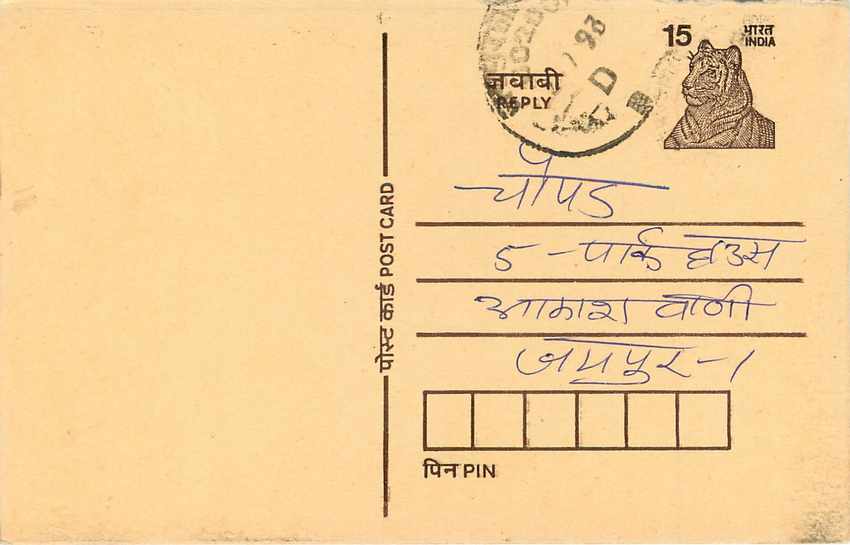 15
भारत
INDIA
जवाबी
REPLY
302001
93
D
चौपड
5 - पार्क हाउस
आकाशवाणी
जयपुर-1
पोस्ट कार्ड POST CARD
पिन PIN